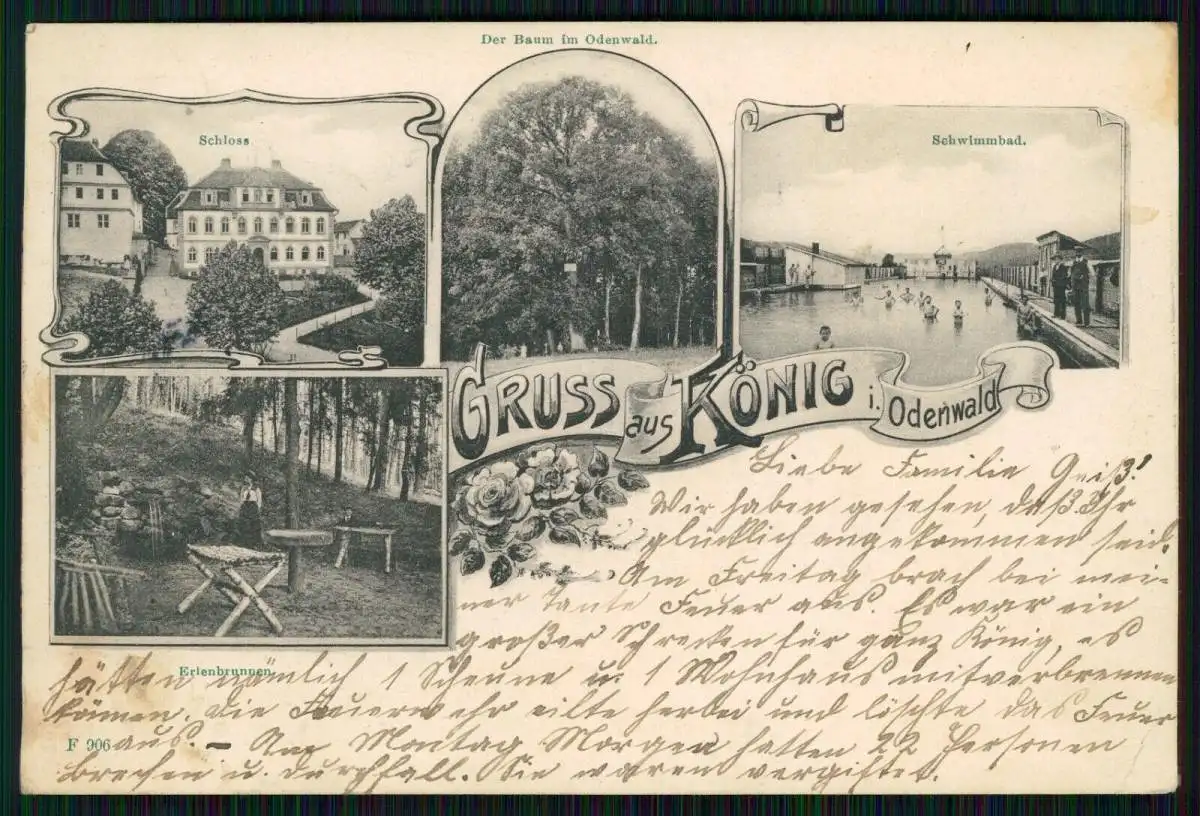 Der Baum im Odenwald.
Schloss
Schwimmbad.
GRUSS aus KÖNIG i. Odenwald
Erlenbrunnen.
F 906
Liebe Familie Geiß!
Wir haben gesehen, daß Ihr
glücklich angekommen seid.
Am Freitag brach bei mei-
ner Tante Feuer aus. Es war ein
großer Schrecken für ganz König, es
hätten nämlich 1 Scheune u. 1 Wohnhaus mitverbrennen
können. Die Feuerwehr eilte herbei und löschte das Feuer
aus. – Am Montag Morgen hatten 22 Personen
brechen u. durchfall. Sie waren vergiftet.